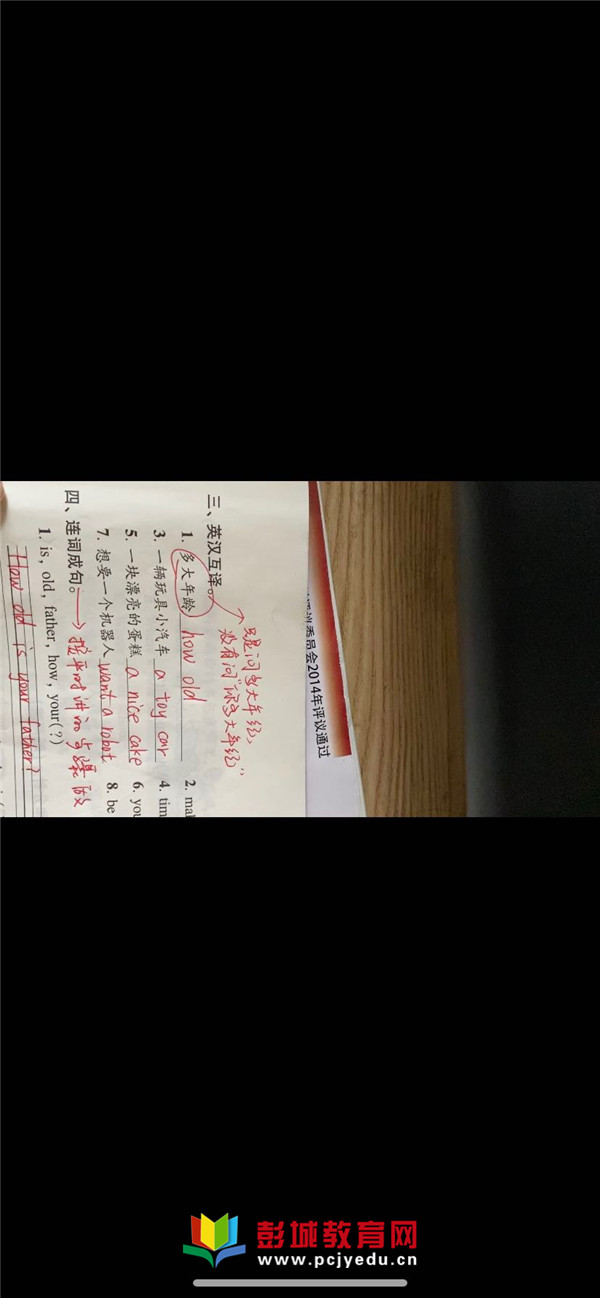 委员会2014年评议通过
只是问多大年纪,
没有问"你多大年纪"
三、英汉互译。
1. 多大年龄 how old 2. mal
3. 一辆玩具小汽车 a toy car 4. tim
5. 一块漂亮的蛋糕 a nice cake 6. you
7. 想要一个机器人 want a robot 8. be
四、连词成句。→按平时讲的步骤做
1. is, old, father, how, your(?)
How old is your father?
彭城教育网
www.pcjyedu.cn